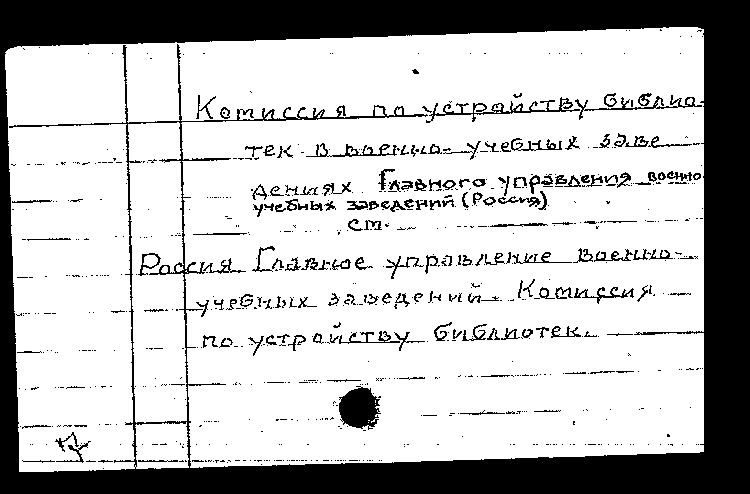 Комиссия по устройству библио-
тек в военно-учебных заве
дениях Главного управления военно-
учебных заведений (Россия)
см.
Россия. Главное управление военно-
учебных заведений. Комиссия
по устройству библиотек.